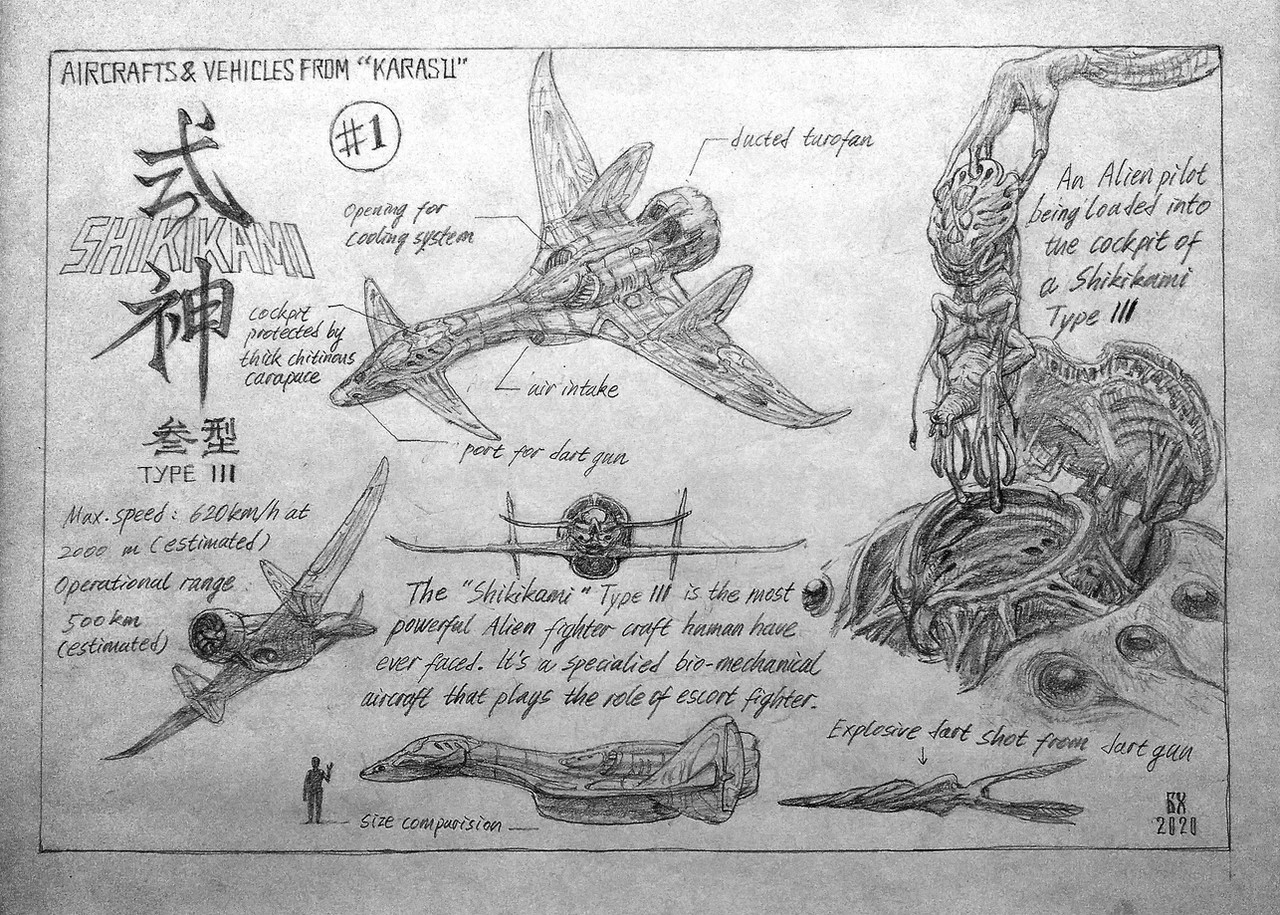 AIRCRAFTS & VEHICLES FROM "KARASU"
#1
式
SHIKIKAMI
神
叁型
TYPE III
Max. speed: 620km/h at
2000 m (estimated)
Operational range
500km
(estimated)
ducted turofan
Opening for
cooling system
cockpit
protected by
thick chitinous
carapace
air intake
port for dart gun
An Alien pilot
being loaded into
the cockpit of
a Shikikami
Type III
The "Shikikami" Type III is the most
powerful Alien fighter craft human have
ever faced. It's a specialied bio-mechanical
aircraft that plays the role of escort fighter.
Explosive dart shot from dart gun
size comparision
2020